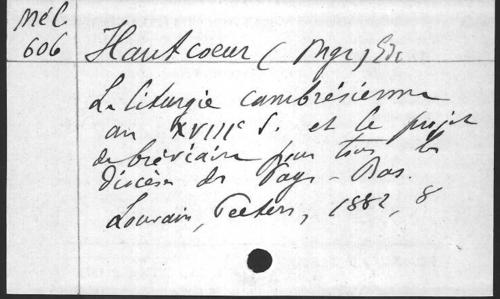 Mél.
606
Hautcoeur (Mgr) Ed.
La liturgie cambrésienne
au XVIIIe S. et le projet
de bréviaire pour tous les
diocèses des Pays-Bas.
Louvain, Peeters, 1882, 8